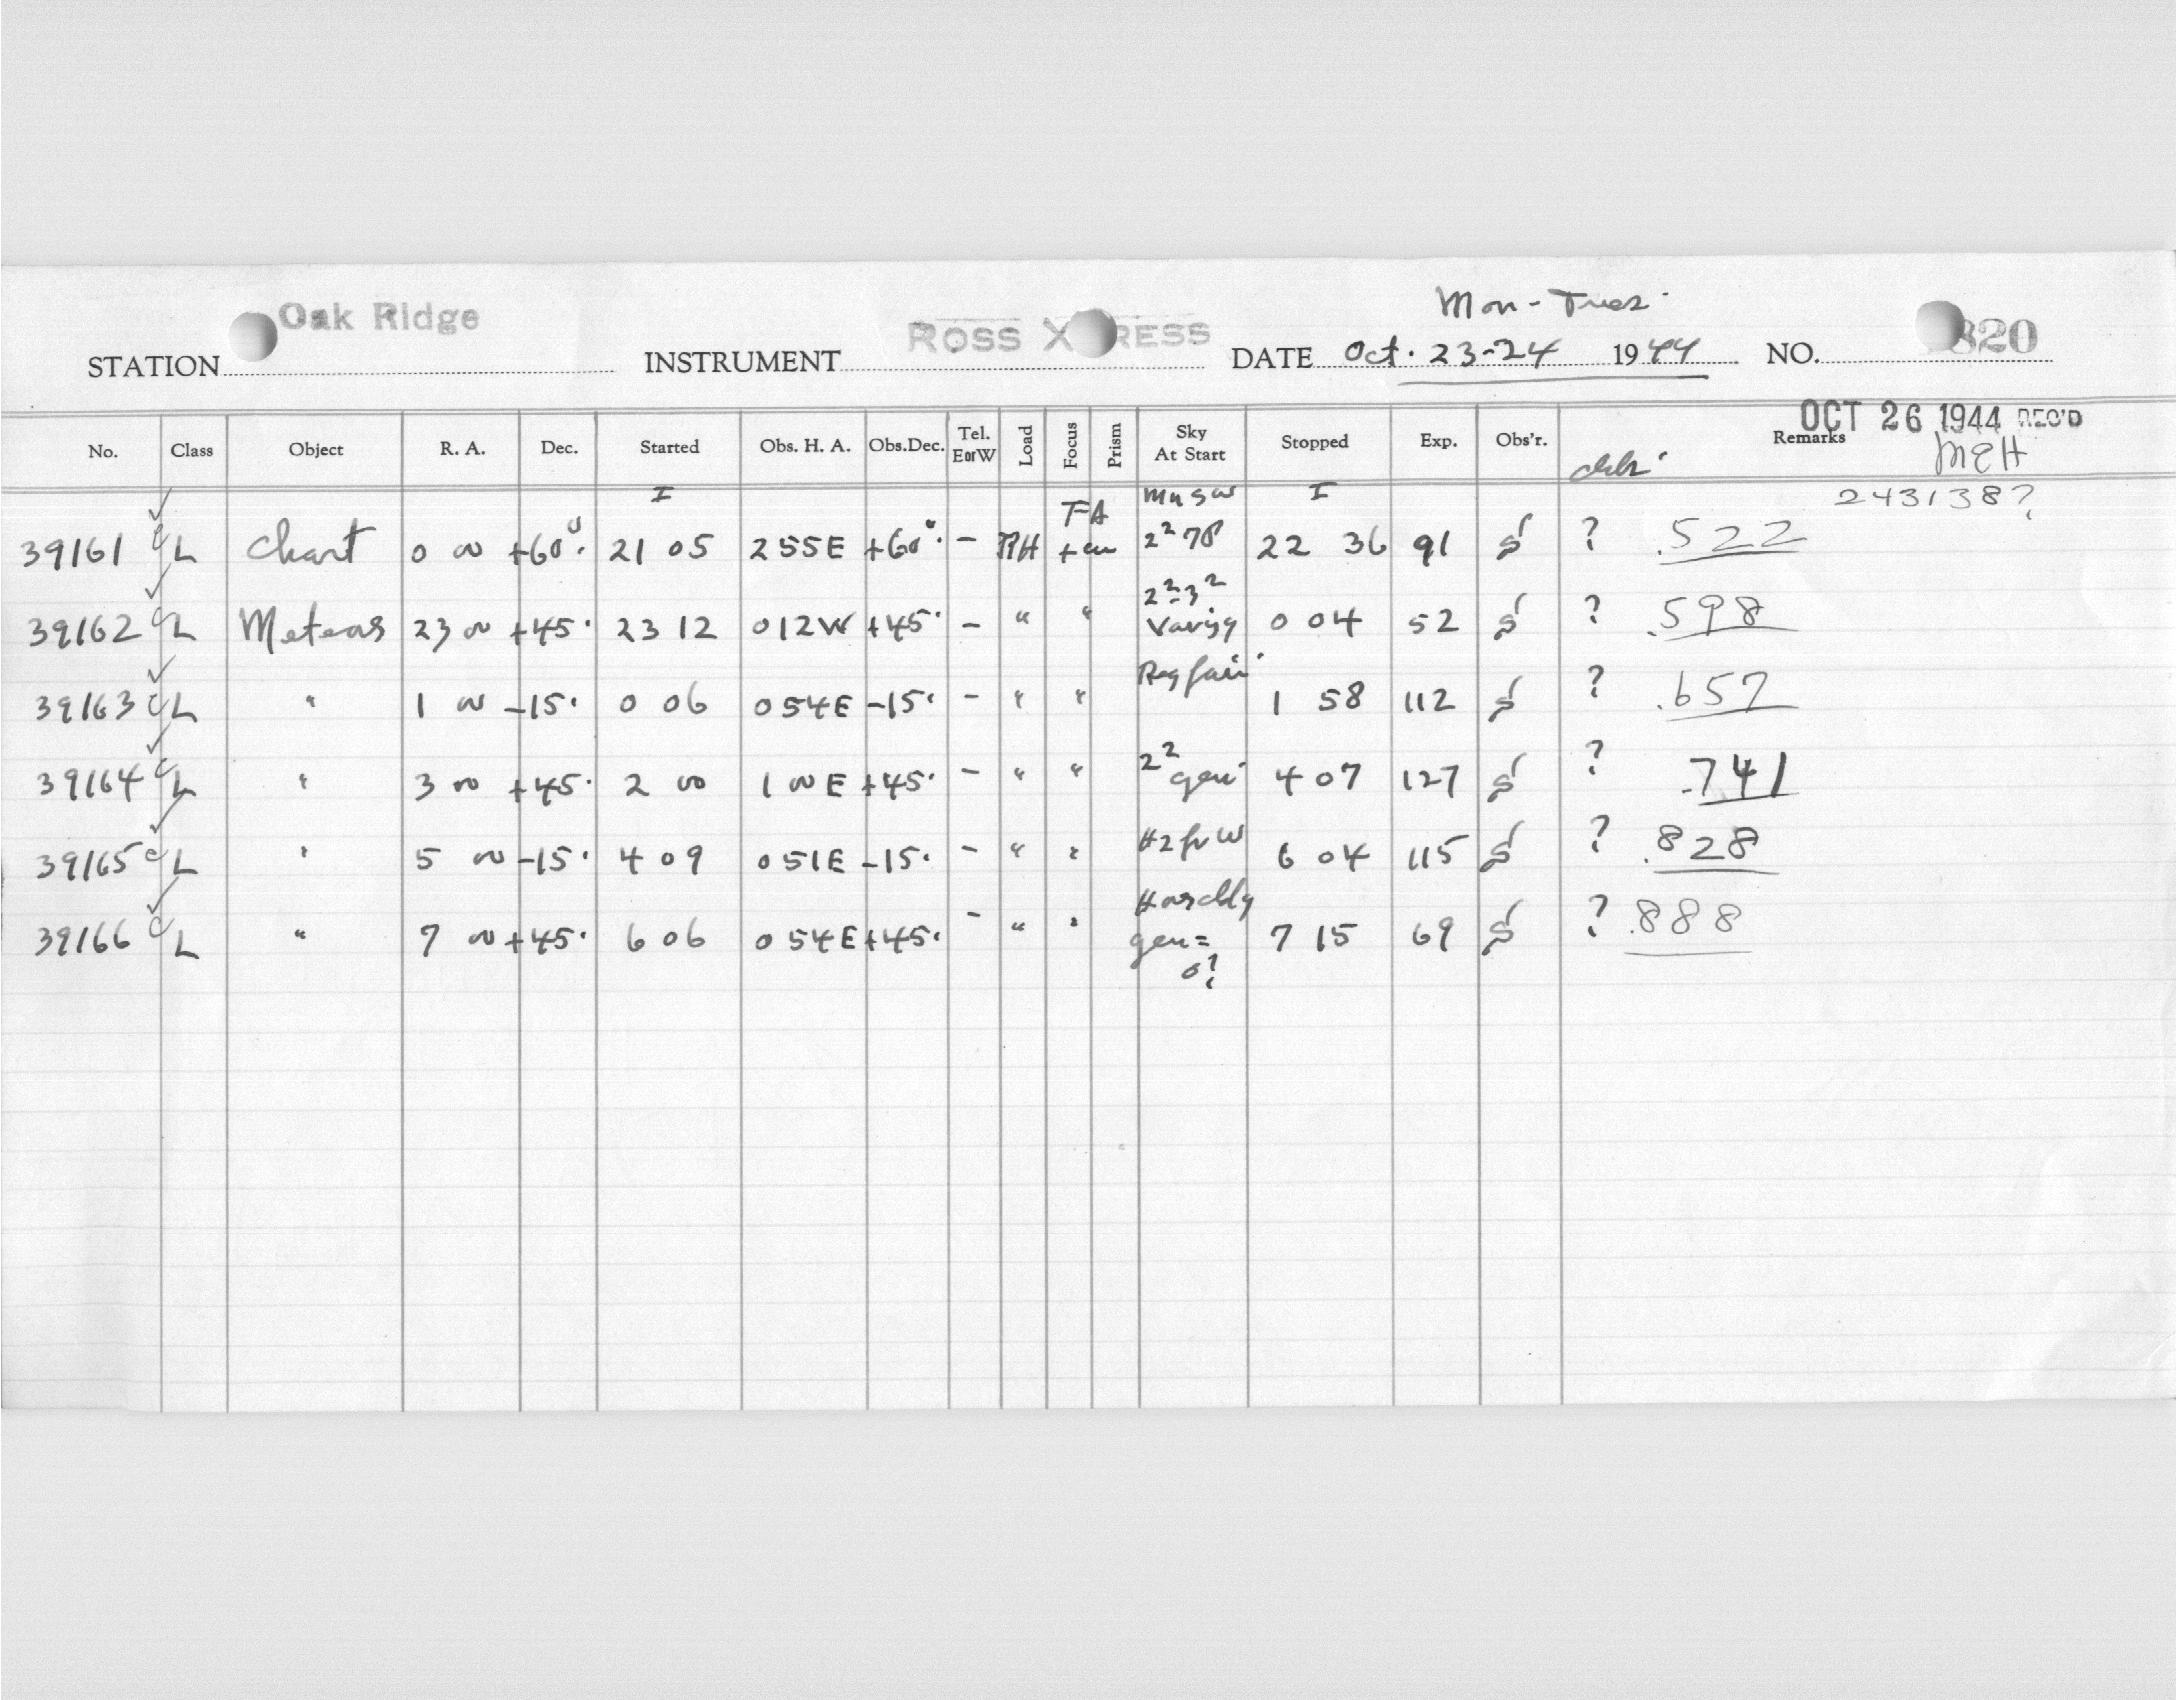 Oak Ridge
Mon - Tues.
STATION INSTRUMENT ROSS X RESS DATE Oct. 23-24 1944 NO. 820
OCT 26 1944 REC'D
No. Class Object R. A. Dec. Started Obs. H. A. Obs.Dec. Tel. EorW Load Focus Prism Sky At Start Stopped Exp. Obs'r. Remarks
MEH
I I 2431387
39161 c L Chart 0 00 +60°. 21 05 255E +60°. - RH FA 2² 78 22 36 91 S ? .522
39162 c L Meteors 23 00 +45. 23 12 012W +45. - " " 2²-3² Varijg 0 04 52 S ? .598
39163 c L " 1 00 -15. 0 06 054E -15. - " " Reg fair 1 58 112 S ? .657
39164 c L " 3 00 +45. 2 00 1 00 E +45. - " " 2² 4 07 127 S ? .741
39165 c L " 5 00 -15. 4 09 051E -15. - " " 6 04 115 S ? .828
39166 c L " 7 00 +45. 6 06 054E +45. - " " 7 15 69 S ? .888